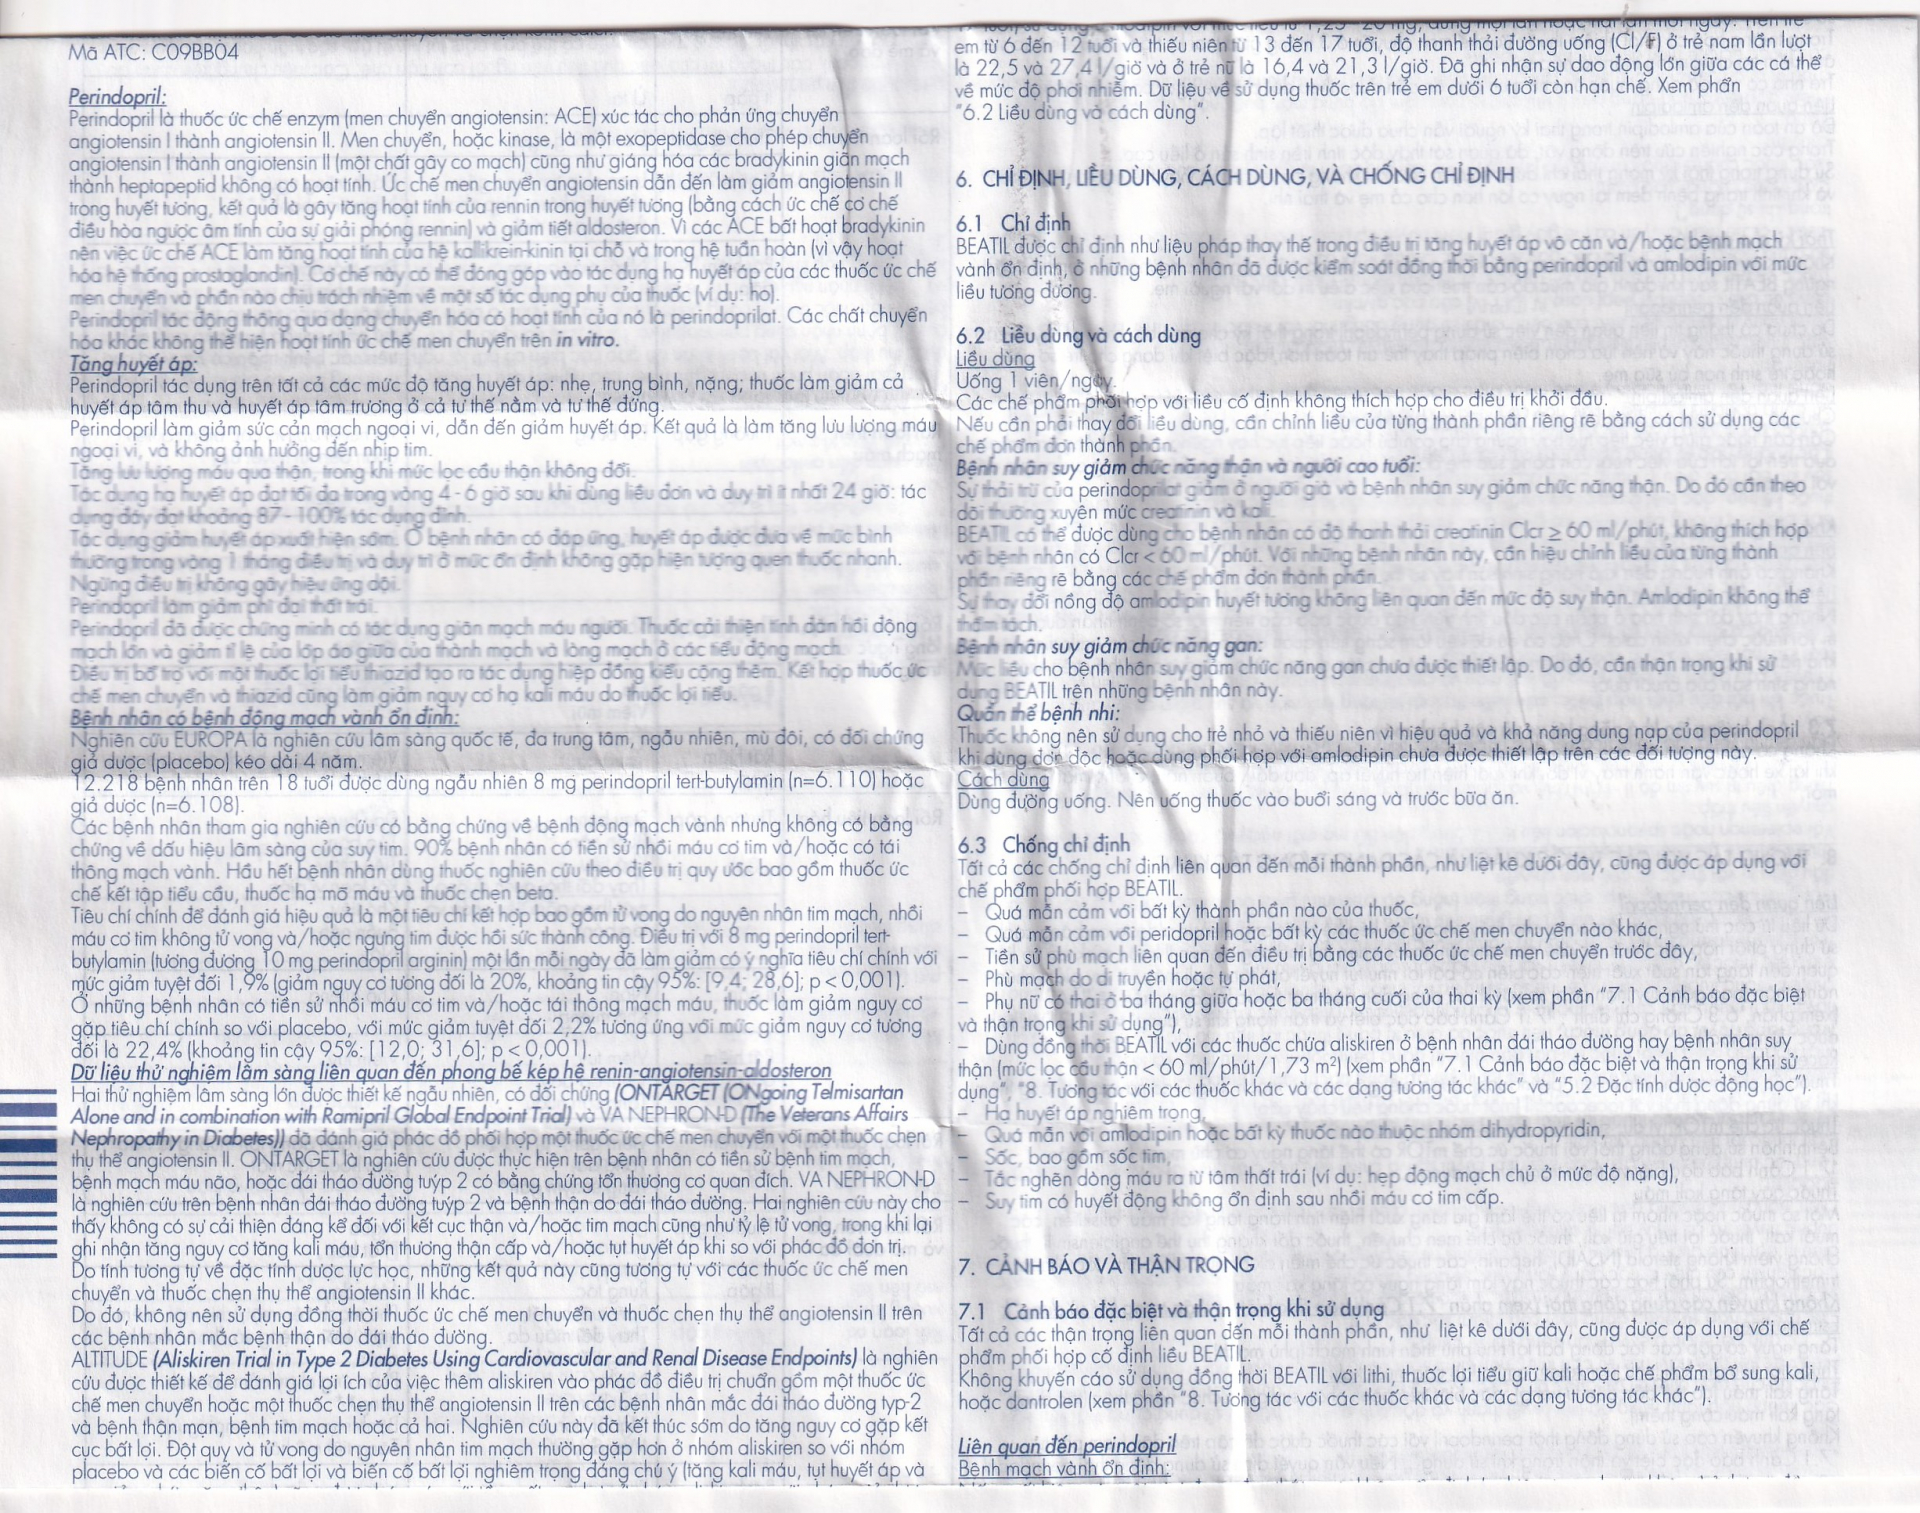 Mã ATC: C09BB04
Perindopril:
Perindopril là thuốc ức chế enzym (men chuyển angiotensin: ACE) xúc tác cho phản ứng chuyển
angiotensin I thành angiotensin II. Men chuyển, hoặc kinase, là một exopeptidase cho phép chuyển
angiotensin I thành angiotensin II (một chất gây co mạch) cũng như giáng hóa các bradykinin giãn mạch
thành heptapeptid không có hoạt tính. Ức chế men chuyển angiotensin dẫn đến làm giảm angiotensin II
trong huyết tương, kết quả là gây tăng hoạt tính của rennin trong huyết tương (bằng cách ức chế cơ chế
điều hòa ngược âm tính của sự giải phóng rennin) và giảm tiết aldosteron. Vì các ACE bất hoạt bradykinin
nên việc ức chế ACE làm tăng hoạt tính của hệ kallikrein-kinin tại chỗ và trong hệ tuần hoàn (vì vậy hoạt
hóa hệ thống prostaglandin). Cơ chế này có thể đóng góp vào tác dụng hạ huyết áp của các thuốc ức chế
men chuyển và phần nào chịu trách nhiệm về một số tác dụng phụ của thuốc (ví dụ: ho).
Perindopril tác động thông qua dạng chuyển hóa có hoạt tính của nó là perindoprilat. Các chất chuyển
hóa khác không thể hiện hoạt tính ức chế men chuyển trên in vitro.
Tăng huyết áp:
Perindopril tác dụng trên tất cả các mức độ tăng huyết áp: nhẹ, trung bình, nặng; thuốc làm giảm cả
huyết áp tâm thu và huyết áp tâm trương ở cả tư thế nằm và tư thế đứng.
Perindopril làm giảm sức cản mạch ngoại vi, dẫn đến giảm huyết áp. Kết quả là làm tăng lưu lượng máu
ngoại vi, và không ảnh hưởng đến nhịp tim.
Tăng lưu lượng máu qua thận, trong khi mức lọc cầu thận không đổi.
Tác dụng hạ huyết áp đạt tối đa trong vòng 4 - 6 giờ sau khi dùng liều đơn và duy trì ít nhất 24 giờ: tác
dụng đáy đạt khoảng 87 - 100% tác dụng đỉnh.
Tác dụng giảm huyết áp xuất hiện sớm. Ở bệnh nhân có đáp ứng, huyết áp được đưa về mức bình
thường trong vòng 1 tháng điều trị và duy trì ở mức ổn định không gặp hiện tượng quen thuốc nhanh.
Ngừng điều trị không gây hiệu ứng dội.
Perindopril làm giảm phì đại thất trái.
Perindopril đã được chứng minh có tác dụng giãn mạch máu người. Thuốc cải thiện tính đàn hồi động
mạch lớn và giảm tỉ lệ của lớp áo giữa của thành mạch và lòng mạch ở các tiểu động mạch.
Điều trị bổ trợ với một thuốc lợi tiểu thiazid tạo ra tác dụng hiệp đồng kiểu cộng thêm. Kết hợp thuốc ức
chế men chuyển và thiazid cũng làm giảm nguy cơ hạ kali máu do thuốc lợi tiểu.
Bệnh nhân có bệnh động mạch vành ổn định:
Nghiên cứu EUROPA là nghiên cứu lâm sàng quốc tế, đa trung tâm, ngẫu nhiên, mù đôi, có đối chứng
giả dược (placebo) kéo dài 4 năm.
12.218 bệnh nhân trên 18 tuổi được dùng ngẫu nhiên 8 mg perindopril tert-butylamin (n=6.110) hoặc
giả dược (n=6.108).
Các bệnh nhân tham gia nghiên cứu có bằng chứng về bệnh động mạch vành nhưng không có bằng
chứng về dấu hiệu lâm sàng của suy tim. 90% bệnh nhân có tiền sử nhồi máu cơ tim và/hoặc có tái
thông mạch vành. Hầu hết bệnh nhân dùng thuốc nghiên cứu theo điều trị quy ước bao gồm thuốc ức
chế kết tập tiểu cầu, thuốc hạ mỡ máu và thuốc chẹn beta.
Tiêu chí chính để đánh giá hiệu quả là một tiêu chí kết hợp bao gồm tử vong do nguyên nhân tim mạch, nhồi
máu cơ tim không tử vong và/hoặc ngưng tim được hồi sức thành công. Điều trị với 8 mg perindopril tert-
butylamin (tương đương 10 mg perindopril arginin) một lần mỗi ngày đã làm giảm có ý nghĩa tiêu chí chính với
mức giảm tuyệt đối 1,9% (giảm nguy cơ tương đối là 20%, khoảng tin cậy 95%: [9,4; 28,6]; p < 0,001).
Ở những bệnh nhân có tiền sử nhồi máu cơ tim và/hoặc tái thông mạch máu, thuốc làm giảm nguy cơ
gặp tiêu chí chính so với placebo, với mức giảm tuyệt đối 2,2% tương ứng với mức giảm nguy cơ tương
đối là 22,4% (khoảng tin cậy 95%: [12,0; 31,6]; p < 0,001).
Dữ liệu thử nghiệm lâm sàng liên quan đến phong bế kép hệ renin-angiotensin-aldosteron
Hai thử nghiệm lâm sàng lớn được thiết kế ngẫu nhiên, có đối chứng (ONTARGET (ONgoing Telmisartan
Alone and in combination with Ramipril Global Endpoint Trial) và VA NEPHRON-D (The Veterans Affairs
Nephropathy in Diabetes)) đã đánh giá phác đồ phối hợp một thuốc ức chế men chuyển với một thuốc chẹn
thụ thể angiotensin II. ONTARGET là nghiên cứu được thực hiện trên bệnh nhân có tiền sử bệnh tim mạch,
bệnh mạch máu não, hoặc đái tháo đường tuýp 2 có bằng chứng tổn thương cơ quan đích. VA NEPHRON-D
là nghiên cứu trên bệnh nhân đái tháo đường tuýp 2 và bệnh thận do đái tháo đường. Hai nghiên cứu này cho
thấy không có sự cải thiện đáng kể đối với kết cục thận và/hoặc tim mạch cũng như tỷ lệ tử vong, trong khi lại
ghi nhận tăng nguy cơ tăng kali máu, tổn thương thận cấp và/hoặc tụt huyết áp khi so với phác đồ đơn trị.
Do tính tương tự về đặc tính dược lực học, những kết quả này cũng tương tự với các thuốc ức chế men
chuyển và thuốc chẹn thụ thể angiotensin II khác.
Do đó, không nên sử dụng đồng thời thuốc ức chế men chuyển và thuốc chẹn thụ thể angiotensin II trên
các bệnh nhân mắc bệnh thận do đái tháo đường.
ALTITUDE (Aliskiren Trial in Type 2 Diabetes Using Cardiovascular and Renal Disease Endpoints) là nghiên
cứu được thiết kế để đánh giá lợi ích của việc thêm aliskiren vào phác đồ điều trị chuẩn gồm một thuốc ức
chế men chuyển hoặc một thuốc chẹn thụ thể angiotensin II trên các bệnh nhân mắc đái tháo đường typ-2
và bệnh thận mạn, bệnh tim mạch hoặc cả hai. Nghiên cứu này đã kết thúc sớm do tăng nguy cơ gặp kết
cục bất lợi. Đột quỵ và tử vong do nguyên nhân tim mạch thường gặp hơn ở nhóm aliskiren so với nhóm
placebo và các biến cố bất lợi và biến cố bất lợi nghiêm trọng đáng chú ý (tăng kali máu, tụt huyết áp và
em từ 6 đến 12 tuổi và thiếu niên từ 13 đến 17 tuổi, độ thanh thải đường uống (Cl/F) ở trẻ nam lần lượt
là 22,5 và 27,4 l/giờ và ở trẻ nữ là 16,4 và 21,3 l/giờ. Đã ghi nhận sự dao động lớn giữa các cá thể
về mức độ phơi nhiễm. Dữ liệu về sử dụng thuốc trên trẻ em dưới 6 tuổi còn hạn chế. Xem phần
“6.2 Liều dùng và cách dùng”.
6. CHỈ ĐỊNH, LIỀU DÙNG, CÁCH DÙNG, VÀ CHỐNG CHỈ ĐỊNH
6.1 Chỉ định
BEATIL được chỉ định như liệu pháp thay thế trong điều trị tăng huyết áp vô căn và/hoặc bệnh mạch
vành ổn định, ở những bệnh nhân đã được kiểm soát đồng thời bằng perindopril và amlodipin với mức
liều tương đương.
6.2 Liều dùng và cách dùng
Liều dùng
Uống 1 viên/ngày.
Các chế phẩm phối hợp với liều cố định không thích hợp cho điều trị khởi đầu.
Nếu cần phải thay đổi liều dùng, cần chỉnh liều của từng thành phần riêng rẽ bằng cách sử dụng các
chế phẩm đơn thành phần.
Bệnh nhân suy giảm chức năng thận và người cao tuổi:
Sự thải trừ của perindoprilat giảm ở người già và bệnh nhân suy giảm chức năng thận. Do đó cần theo
dõi thường xuyên mức creatinin và kali.
BEATIL có thể được dùng cho bệnh nhân có độ thanh thải creatinin Clcr ≥ 60 ml/phút, không thích hợp
với bệnh nhân có Clcr < 60 ml/phút. Với những bệnh nhân này, cần hiệu chỉnh liều của từng thành
phần riêng rẽ bằng các chế phẩm đơn thành phần.
Sự thay đổi nồng độ amlodipin huyết tương không liên quan đến mức độ suy thận. Amlodipin không thể
thẩm tách.
Bệnh nhân suy giảm chức năng gan:
Mức liều cho bệnh nhân suy giảm chức năng gan chưa được thiết lập. Do đó, cần thận trọng khi sử
dụng BEATIL trên những bệnh nhân này.
Quần thể bệnh nhi:
Thuốc không nên sử dụng cho trẻ nhỏ và thiếu niên vì hiệu quả và khả năng dung nạp của perindopril
khi dùng đơn độc hoặc dùng phối hợp với amlodipin chưa được thiết lập trên các đối tượng này.
Cách dùng
Dùng đường uống. Nên uống thuốc vào buổi sáng và trước bữa ăn.
6.3 Chống chỉ định
Tất cả các chống chỉ định liên quan đến mỗi thành phần, như liệt kê dưới đây, cũng được áp dụng với
chế phẩm phối hợp BEATIL.
– Quá mẫn cảm với bất kỳ thành phần nào của thuốc,
– Quá mẫn cảm với peridopril hoặc bất kỳ các thuốc ức chế men chuyển nào khác,
– Tiền sử phù mạch liên quan đến điều trị bằng các thuốc ức chế men chuyển trước đây,
– Phù mạch do di truyền hoặc tự phát,
– Phụ nữ có thai ở ba tháng giữa hoặc ba tháng cuối của thai kỳ (xem phần “7.1 Cảnh báo đặc biệt
và thận trọng khi sử dụng”),
– Dùng đồng thời BEATIL với các thuốc chứa aliskiren ở bệnh nhân đái tháo đường hay bệnh nhân suy
thận (mức lọc cầu thận < 60 ml/phút/1,73 m²) (xem phần “7.1 Cảnh báo đặc biệt và thận trọng khi sử
dụng”, “8. Tương tác với các thuốc khác và các dạng tương tác khác” và “5.2 Đặc tính dược động học”).
– Hạ huyết áp nghiêm trọng,
– Quá mẫn với amlodipin hoặc bất kỳ thuốc nào thuộc nhóm dihydropyridin,
– Sốc, bao gồm sốc tim,
– Tắc nghẽn dòng máu ra từ tâm thất trái (ví dụ: hẹp động mạch chủ ở mức độ nặng),
– Suy tim có huyết động không ổn định sau nhồi máu cơ tim cấp.
7. CẢNH BÁO VÀ THẬN TRỌNG
7.1 Cảnh báo đặc biệt và thận trọng khi sử dụng
Tất cả các thận trọng liên quan đến mỗi thành phần, như liệt kê dưới đây, cũng được áp dụng với chế
phẩm phối hợp cố định liều BEATIL.
Không khuyến cáo sử dụng đồng thời BEATIL với lithi, thuốc lợi tiểu giữ kali hoặc chế phẩm bổ sung kali,
hoặc dantrolen (xem phần “8. Tương tác với các thuốc khác và các dạng tương tác khác”).
Liên quan đến perindopril
Bệnh mạch vành ổn định: